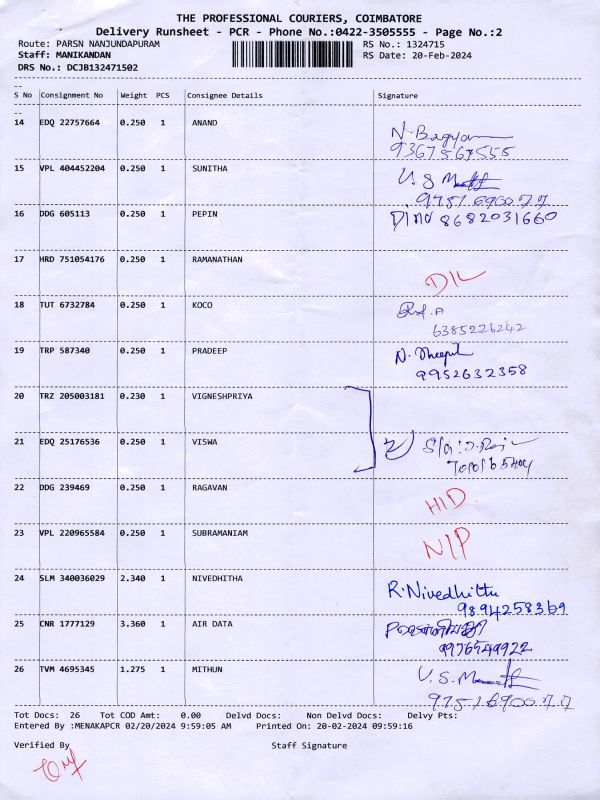 THE PROFESSIONAL COURIERS, COIMBATORE
Delivery Runsheet - PCR - Phone No.:0422-3505555 - Page No.:2
Route: PARSN NANJUNDAPURAM RS No.: 1324715
Staff: MANIKANDAN RS Date: 20-Feb-2024
DRS No.: DCJB132471502
S No Consignment No Weight PCS Consignee Details Signature
14 EDQ 22757664 0.250 1 ANAND
9367567555
15 VPL 404452204 0.250 1 SUNITHA
9751690077
16 DDG 605113 0.250 1 PEPIN 8682031660
17 HRD 751054176 0.250 1 RAMANATHAN
D/L
18 TUT 6732784 0.250 1 KOCO
6385226242
19 TRP 587340 0.250 1 PRADEEP
9952632358
20 TRZ 205003181 0.230 1 VIGNESHPRIYA
21 EDQ 25176536 0.250 1 VISWA
22 DDG 239469 0.250 1 RAGAVAN
H/D
23 VPL 220965584 0.250 1 SUBRAMANIAM
N/P
24 SLM 340036029 2.340 1 NIVEDHITHA
R.Nivedhitha
9894258369
25 CNR 1777129 3.360 1 AIR DATA
9976549922
26 TVM 4695345 1.275 1 MITHUN
9751690077
Tot Docs: 26 Tot COD Amt: 0.00 Delvd Docs: Non Delvd Docs: Delvy Pts:
Entered By :MENAKAPCR 02/20/2024 9:59:05 AM Printed On: 20-02-2024 09:59:16
Verified By Staff Signature